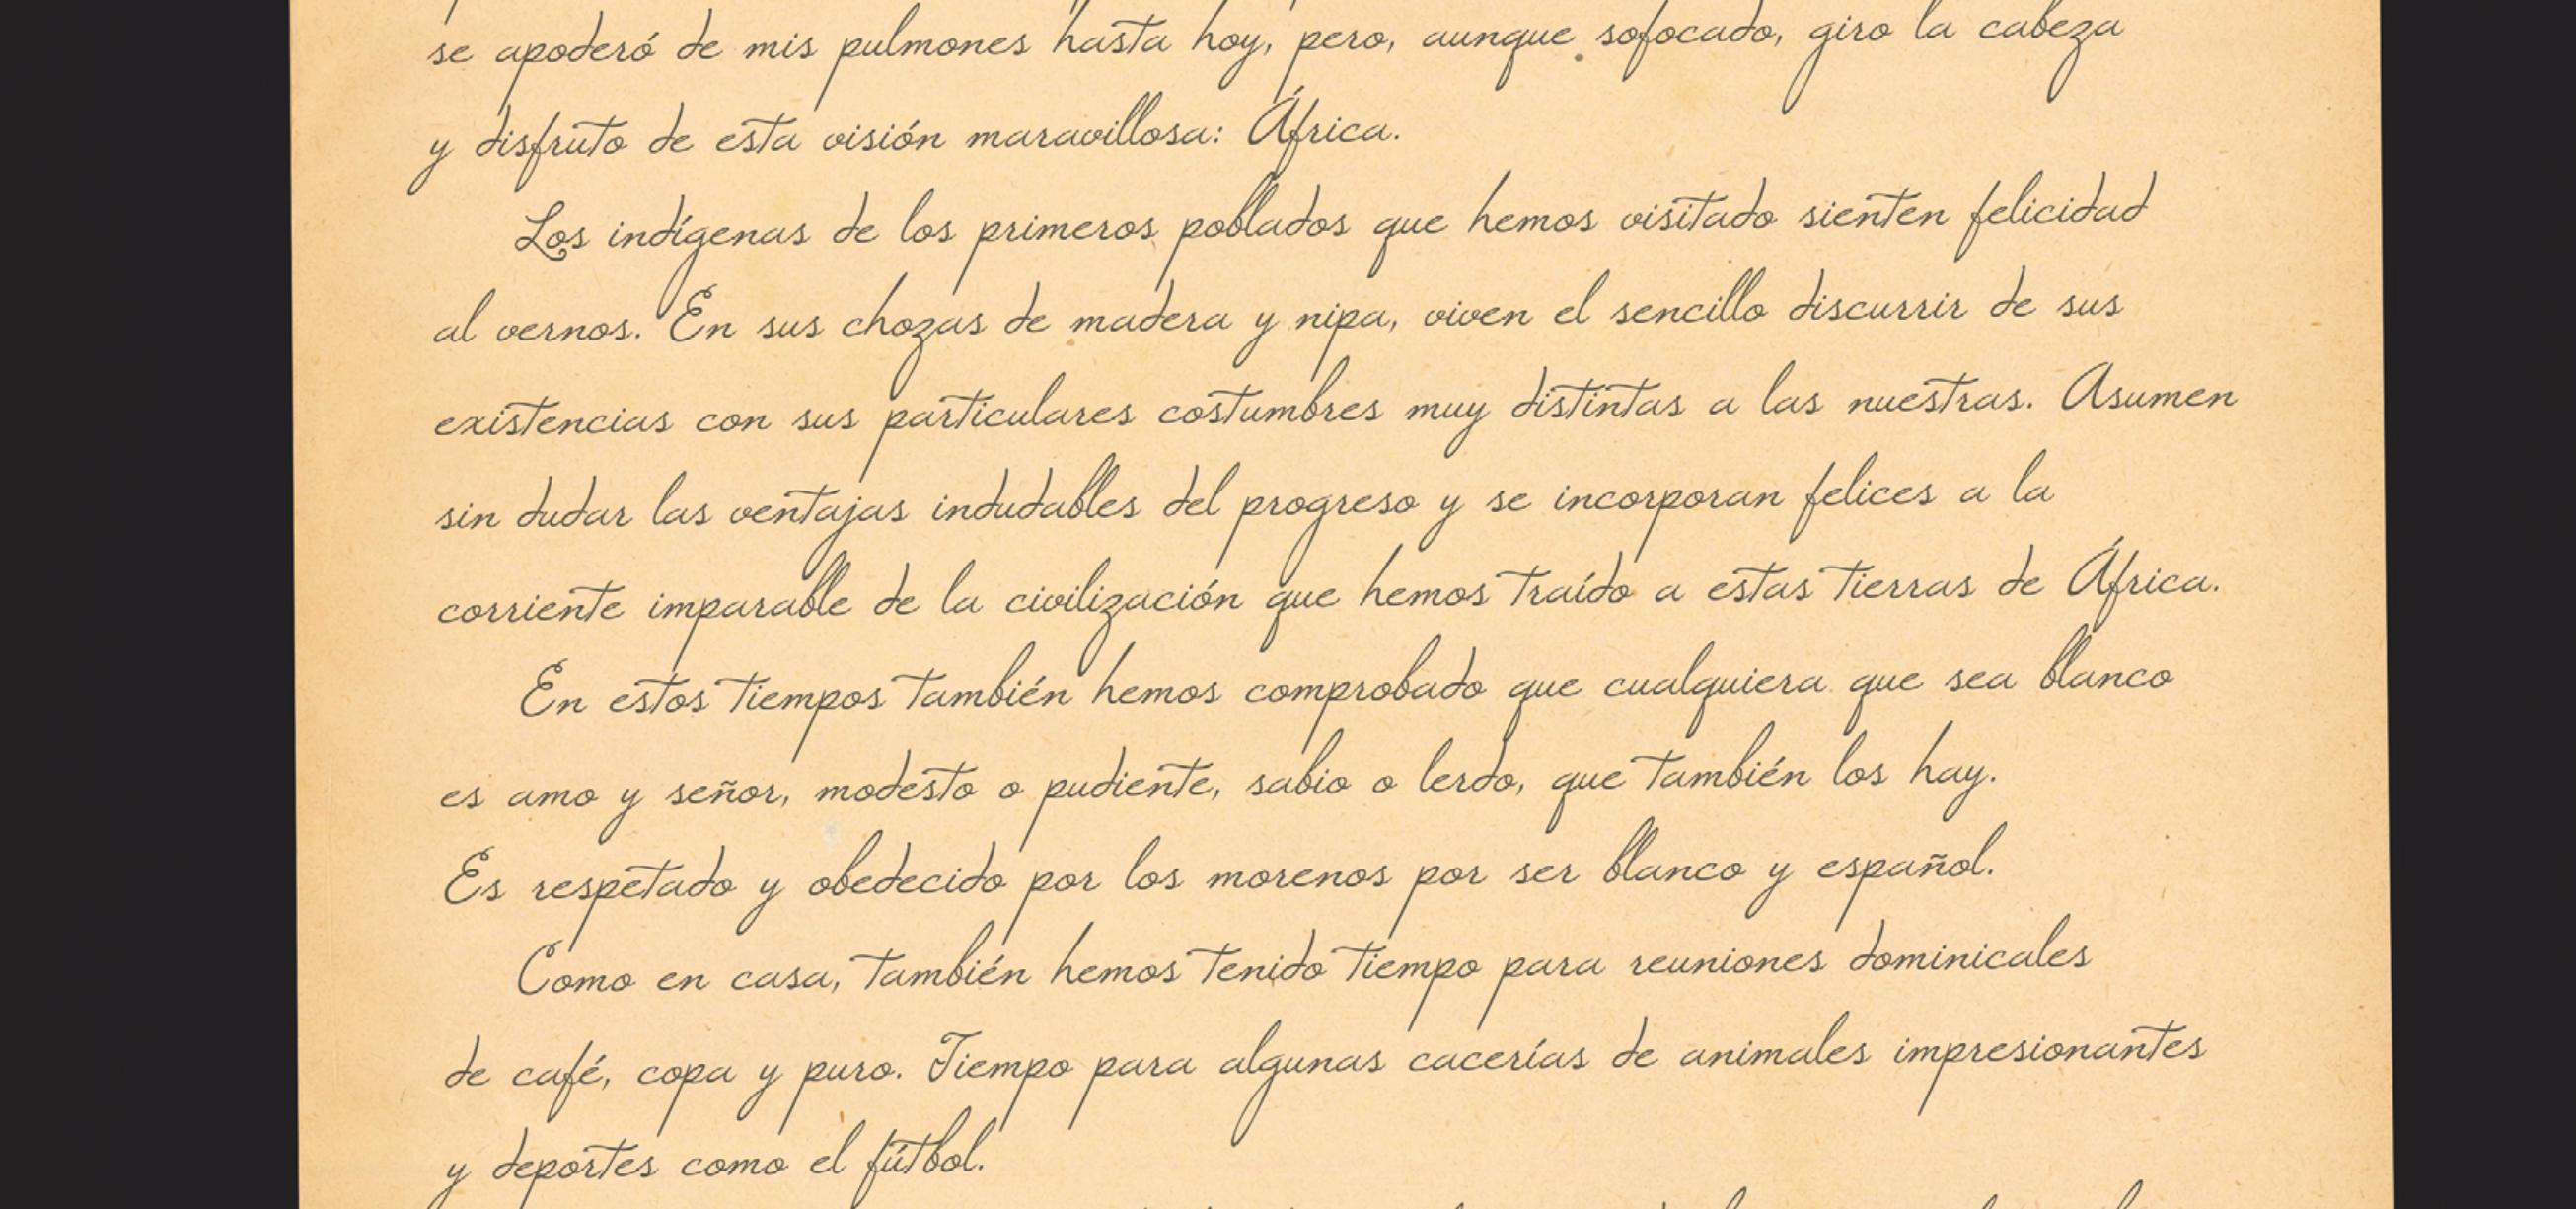 se apoderó de mis pulmones hasta hoy, pero, aunque sofocado, giro la cabeza
y disfruto de esta visión maravillosa: África.
Los indígenas de los primeros poblados que hemos visitado sienten felicidad
al vernos. En sus chozas de madera y nipa, viven el sencillo discurrir de sus
existencias con sus particulares costumbres muy distintas a las nuestras. Asumen
sin dudar las ventajas indudables del progreso y se incorporan felices a la
corriente imparable de la civilización que hemos traído a estas tierras de África.
En estos tiempos también hemos comprobado que cualquiera que sea blanco
es amo y señor, modesto o pudiente, sabio o lerdo, que también los hay.
Es respetado y obedecido por los morenos por ser blanco y español.
Como en casa, también hemos tenido tiempo para reuniones dominicales
de café, copa y puro. Tiempo para algunas cacerías de animales impresionantes
y deportes como el fútbol.